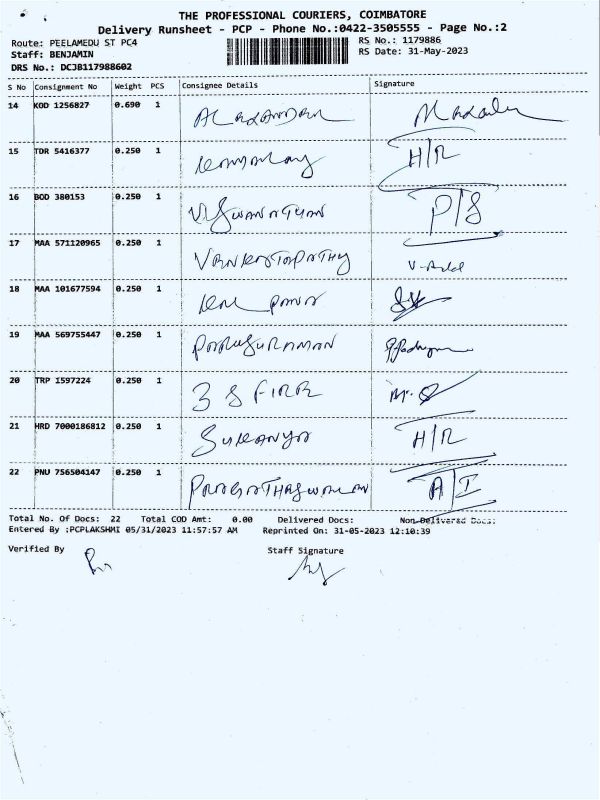 THE PROFESSIONAL COURIERS, COIMBATORE
Delivery Runsheet - PCP - Phone No.:0422-3505555 - Page No.:2
Route: PEELAMEDU ST PC4 RS No.: 1179886
Staff: BENJAMIN RS Date: 31-May-2023
DRS No.: DCJB117988602
S No Consignment No Weight PCS Consignee Details Signature
14 KOD 1256827 0.690 1
15 TDR 5416377 0.250 1 H/R
16 BOD 380153 0.250 1 VISWANATHAN P/S
17 MAA 571120965 0.250 1 VENKATAPATHY
18 MAA 101677594 0.250 1
19 MAA 569755447 0.250 1 PARASURAMAN
20 TRP 1597224 0.250 1 3 S FIRE
21 HRD 7000186812 0.250 1 SUKANYA H/R
22 PNU 756504147 0.250 1 A/I
Total No. Of Docs: 22 Total COD Amt: 0.00 Delivered Docs: Non-Delivered Docs:
Entered By :PCPLAKSHMI 05/31/2023 11:57:57 AM Reprinted On: 31-05-2023 12:10:39
Verified By Staff Signature